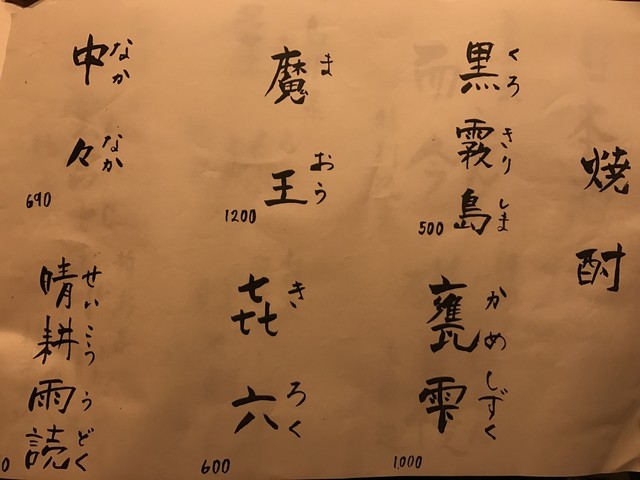 焼酎
黒霧島
くろきりしま
500
甕雫
かめしずく
1,000
魔王
まおう
1200
㐂六
きろく
600
中々
なかなか
690
晴耕雨読
せいこううどく